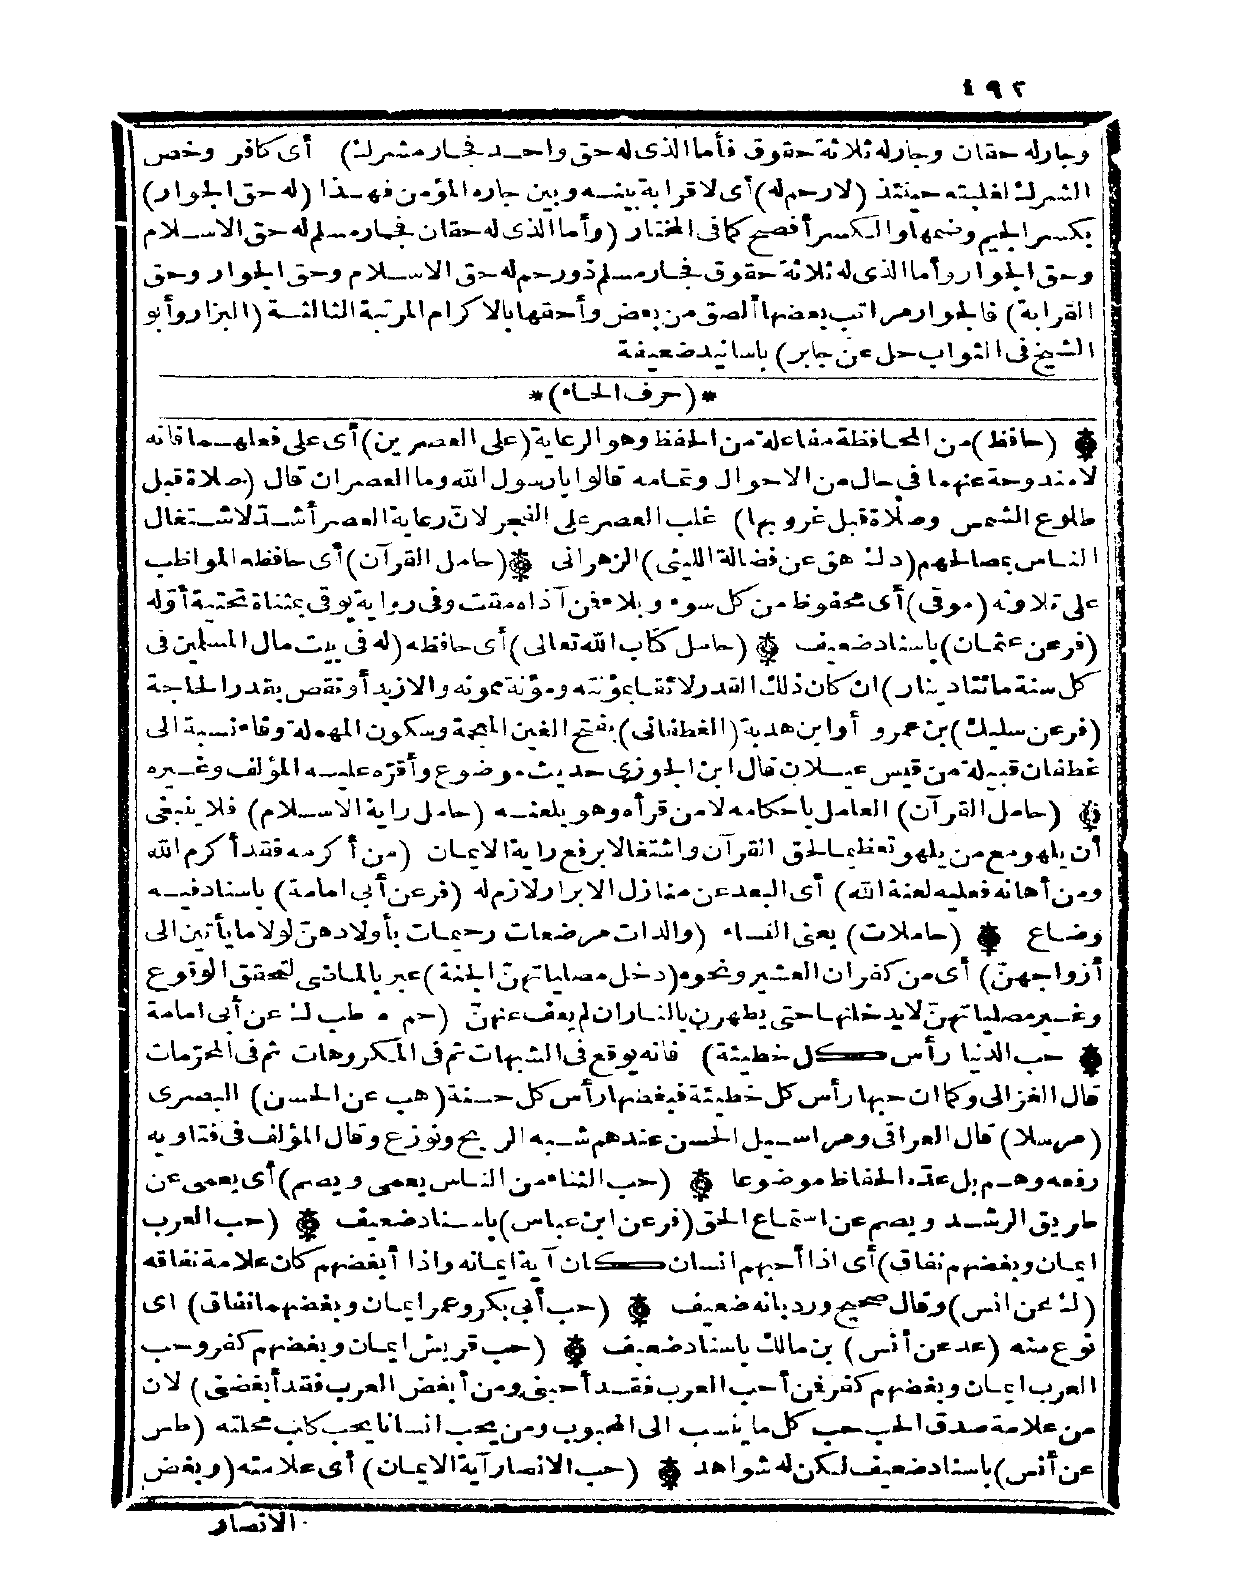 ٤٩٢
وجار له حقان وجار له ثلاثة حقوق فأما الذى له حق واحد فجار مشرك) أى كافر وخص
الشرك لغلبته حينئذ (لا رحم له) أى لا قرابة بينه وبين جاره المؤمن فهذا (له حق الجوار)
بكسر الجيم وضمها والكسر أفصح كما فى المختار (وأما الذى له حقان فجار مسلم له حق الاسلام
وحق الجوار وأما الذى له ثلاثة حقوق فجار مسلم ذو رحم له حق الاسلام وحق الجوار وحق
القرابة) فالجوار مراتب بعضها ألصق من بعض وأحقها بالاكرام المرتبة الثالثة (البزار وأبو
الشيخ فى الثواب حل عن جابر) باسانيد ضعيفة
*(حرف الحاء)*
(حافظ) من المحافظة مفاعلة من الحفظ وهو الرعاية (على العصرين) أى على فعلهما فانه
لا مندوحة عنهما فى حال من الاحوال وتمامه قالوا يا رسول الله وما العصران قال (صلاة قبل
طلوع الشمس وصلاة قبل غروبها) غلب العصر على الفجر لانّ رعاية العصر أشدّ لاشتغال
الناس بمصالحهم (د ك هق عن فضالة الليثى) الزهرانى (حامل القرآن) أى حافظه المواظب
على تلاوته (موقى) أى محفوظ من كل سوء وبلاء فمن آذاه مقت وفى رواية يوقى بمثناة تحتية أوّله
(فر عن عثمان) باسناد ضعيف (حامل كتاب الله تعالى) أى حافظه (له فى بيت مال المسلمين فى
كل سنة مائتا دينار) ان كان ذلك القدر لائقا بمؤنته ومؤنة ممونه والا زيد أو نقص بقدر الحاجة
(فر عن سليك) بن عمرو أو ابن هدبة (الغطفانى) بفتح الغين المعجمة وسكون المهملة وفاء نسبة الى
غطفان قبيلة من قيس عيلان قال ابن الجوزى حديث موضوع وأقرّه عليه المؤلف وغيره
(حامل القرآن) العامل باحكامه لا من قرأه وهو يلعنه (حامل راية الاسلام) فلا ينبغى
أن يلهو مع من يلهو تعظيما لحق القرآن واشتغالا برفع راية الايمان (من أكرمه فقد أكرم الله
ومن أهانه فعليه لعنة الله) أى البعد عن منازل الابرار لازم له (فر عن أبى امامة) باسناد فيه
وضاع (حاملات) يعنى النساء (والدات مرضعات رحيمات بأولادهنّ لولا ما يأتين الى
أزواجهنّ) أى من كفران العشير ونحوه (دخل مصلياتهنّ الجنة) عبر بالماضى لتحقق الوقوع
وغير مصلياتهنّ لا يدخلنها حتى يطهرن بالنار ان لم يعف عنهنّ (حم ه طب ك عن أبى امامة
حب الدنيا رأس كل خطيئة) فانه يوقع فى الشبهات ثم فى المكروهات ثم فى المحرّمات
قال الغزالى وكما ان حبها رأس كل خطيئة فبغضها رأس كل حسنة (هب عن الحسن) البصرى
(مرسلا) قال العراقى ومراسيل الحسن عندهم شبه الريح ونوزع وقال المؤلف فى فتاويه
رفعه وهم بل عدّه الحفاظ موضوعا (حب الثناء من الناس يعمى ويصم) أى يعمى عن
طريق الرشد ويصم عن استماع الحق (فر عن ابن عباس) باسناد ضعيف (حب العرب
ايمان وبغضهم نفاق) أى اذا أحبهم انسان كان آية ايمانه واذا أبغضهم كان علامة نفاقه
(ك عن انس) وقال صحيح ورد بانه ضعيف (حب أبى بكر وعمر ايمان وبغضهما نفاق) اى
نوع منه (عد عن أنس) بن مالك باسناد ضعيف (حب قريش ايمان وبغضهم كفر وحب
العرب ايمان وبغضهم كفر فمن أحب العرب فقد أحبنى ومن أبغض العرب فقد أبغضنى) لان
من علامة صدق الحب حب كل ما ينسب الى المحبوب ومن يحب انسانا يحب كلب محلته (طس
عن أنس) باسناد ضعيف لكن له شواهد (حب الانصار آية الايمان) أى علامته (وبغض
الانصار